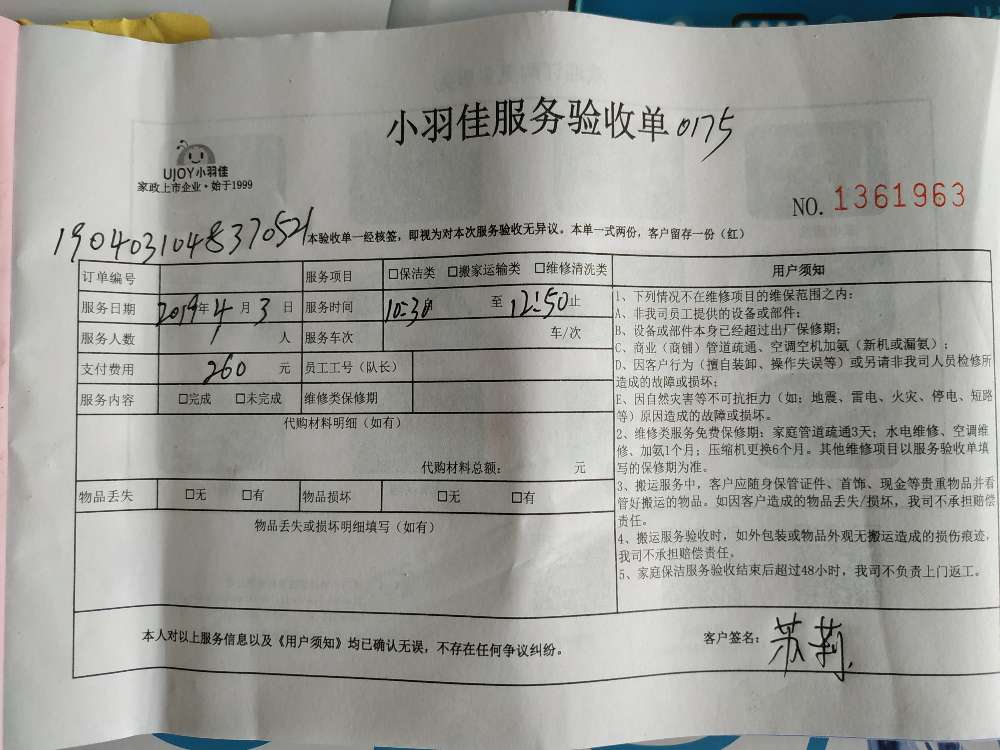 小羽佳服务验收单 0175
UJOY小羽佳
家政上市企业·始于1999
NO. 1361963
1904031048370521
本验收单一经核签，即视为对本次服务验收无异议。本单一式两份，客户留存一份（红）
订单编号 服务项目 □保洁类 □搬家运输类 □维修清洗类
服务日期 2019年4月3日 服务时间 10:30至12:50止
服务人数 1人 服务车次 车/次
支付费用 260元 员工工号（队长）
服务内容 □完成 □未完成 维修类保修期
代购材料明细（如有）
代购材料总额： 元
物品丢失 □无 □有 物品损坏 □无 □有
物品丢失或损坏明细填写（如有）
用户须知
1、下列情况不在维修项目的维保范围之内：
A、非我司员工提供的设备或部件；
B、设备或部件本身已经超过出厂保修期；
C、商业（商铺）管道疏通、空调空机加氨（新机或漏氨）；
D、因客户行为（擅自装卸、操作失误等）或另请非我司人员检修所
造成的故障或损坏；
E、因自然灾害等不可抗拒力（如：地震、雷电、火灾、停电、短路
等）原因造成的故障或损坏。
2、维修类服务免费保修期：家庭管道疏通3天；水电维修、空调维
修、加氨1个月；压缩机更换6个月。其他维修项目以服务验收单填
写的保修期为准。
3、搬运服务中，客户应随身保管证件、首饰、现金等贵重物品并看
管好搬运的物品。如因客户造成的物品丢失/损坏，我司不承担赔偿
责任。
4、搬运服务验收时，如外包装或物品外观无搬运造成的损伤痕迹，
我司不承担赔偿责任。
5、家庭保洁服务验收结束后超过48小时，我司不负责上门返工。
本人对以上服务信息以及《用户须知》均已确认无误，不存在任何争议纠纷。
客户签名：苏莉